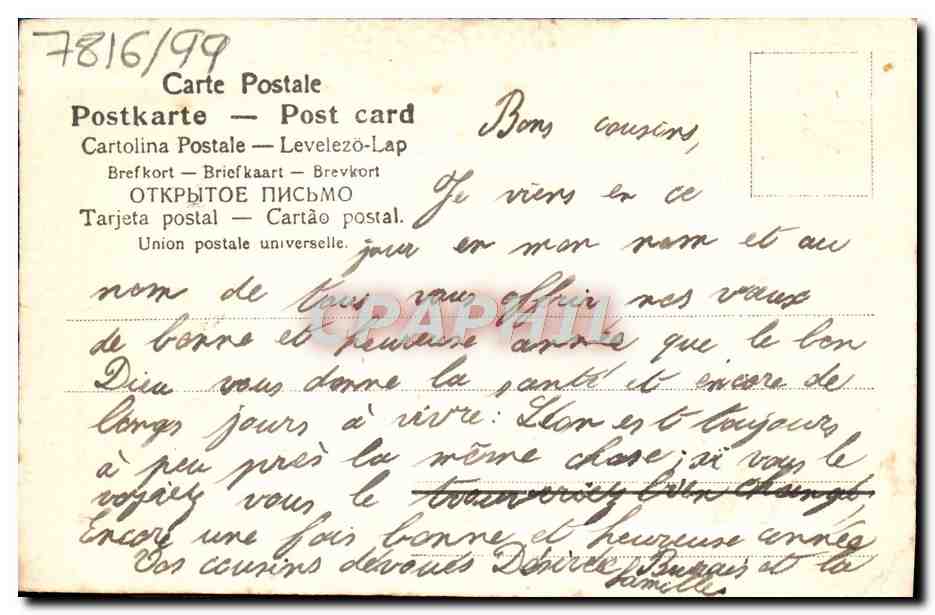 7816/99
Carte Postale
Postkarte — Post card
Cartolina Postale — Levelező-Lap
Brefkort — Briefkaart — Brevkort
ОТКРЫТОЕ ПИСЬМО
Tarjeta postal — Cartão postal.
Union postale universelle.
Bons cousins,
Je viens en ce
jour en mon nom et au
nom de tous vous offrir nos vœux
de bonne et heureuse année que le bon
Dieu vous donne la santé et encore de
longs jours à vivre : Léon est toujours
à peu près la même chose ; si vous le
voyiez vous le trouveriez bien changé,
Encore une fois bonne et heureuse année
Vos cousins dévoués Désiré et la
famille
CPAPHIL